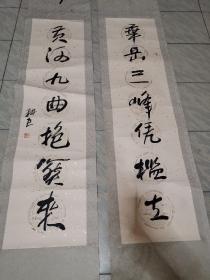 華岳三峰凭檻立
黄河九曲抱關来